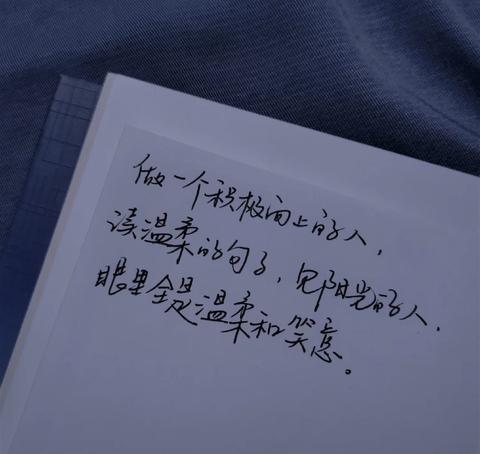 做一个积极向上的人,
读温柔的句子,见阳光的人,
眼里全是温柔和笑意。